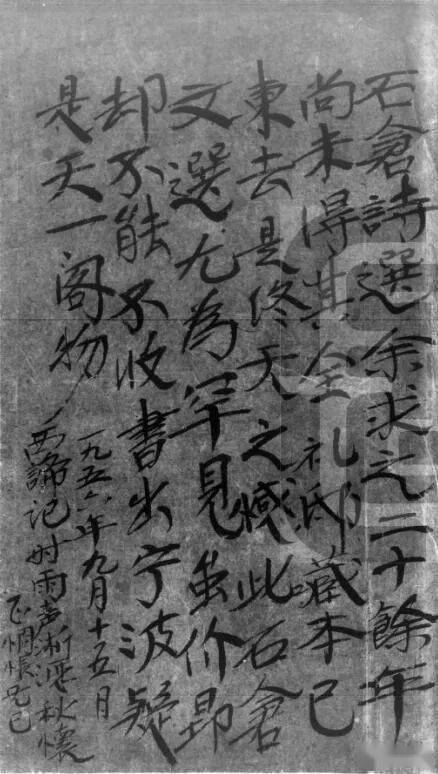 石倉詩選余求之二十餘年
尚未得其全礼邸藏本已
東去是终天之憾此石倉
文選尤為罕見虽价昂
却不能不收書出宁波疑
是天一阁物
一九五六年九月十五日
西諦记时雨声淅瀝秋懷
正惆悵已